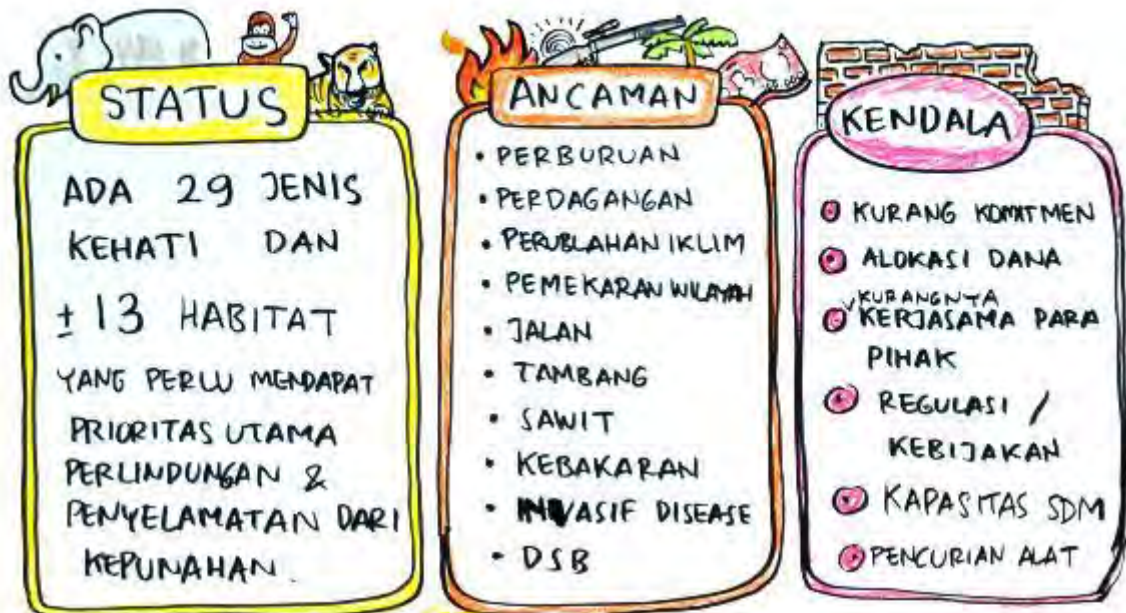 STATUS
ADA 29 JENIS
KEHATI DAN
± 13 HABITAT
YANG PERLU MENDAPAT
PRIORITAS UTAMA
PERLINDUNGAN &
PENYELAMATAN DARI
KEPUNAHAN.
ANCAMAN
• PERBURUAN
• PERDAGANGAN
• PERUBLAHAN IKLIM
• PEMEKARAN WILAYAH
• JALAN
• TAMBANG
• SAWIT
• KEBAKARAN
• INVASIF DISEASE
• DSB
KENDALA
• KURANG KOMITMEN
• ALOKASI DANA
• KURANGNYA
KERJASAMA PARA
PIHAK
• REGULASI /
KEBIJAKAN
• KAPASITAS SDM
• PENCURIAN ALAT